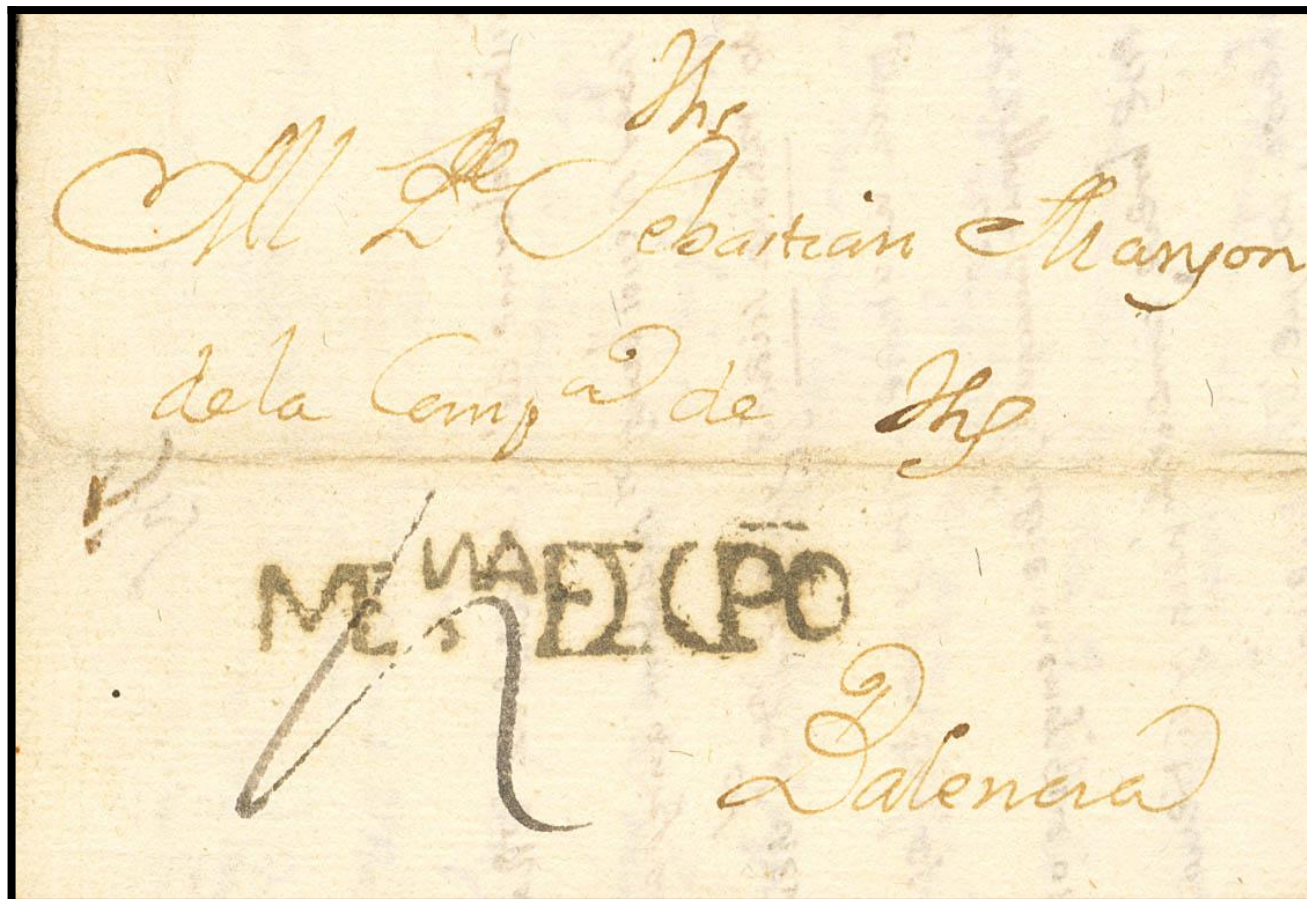 Jhs
Al Pe Sebastian Manjon
de la Compa de Jhs
MEnaEL CPO
Palencia